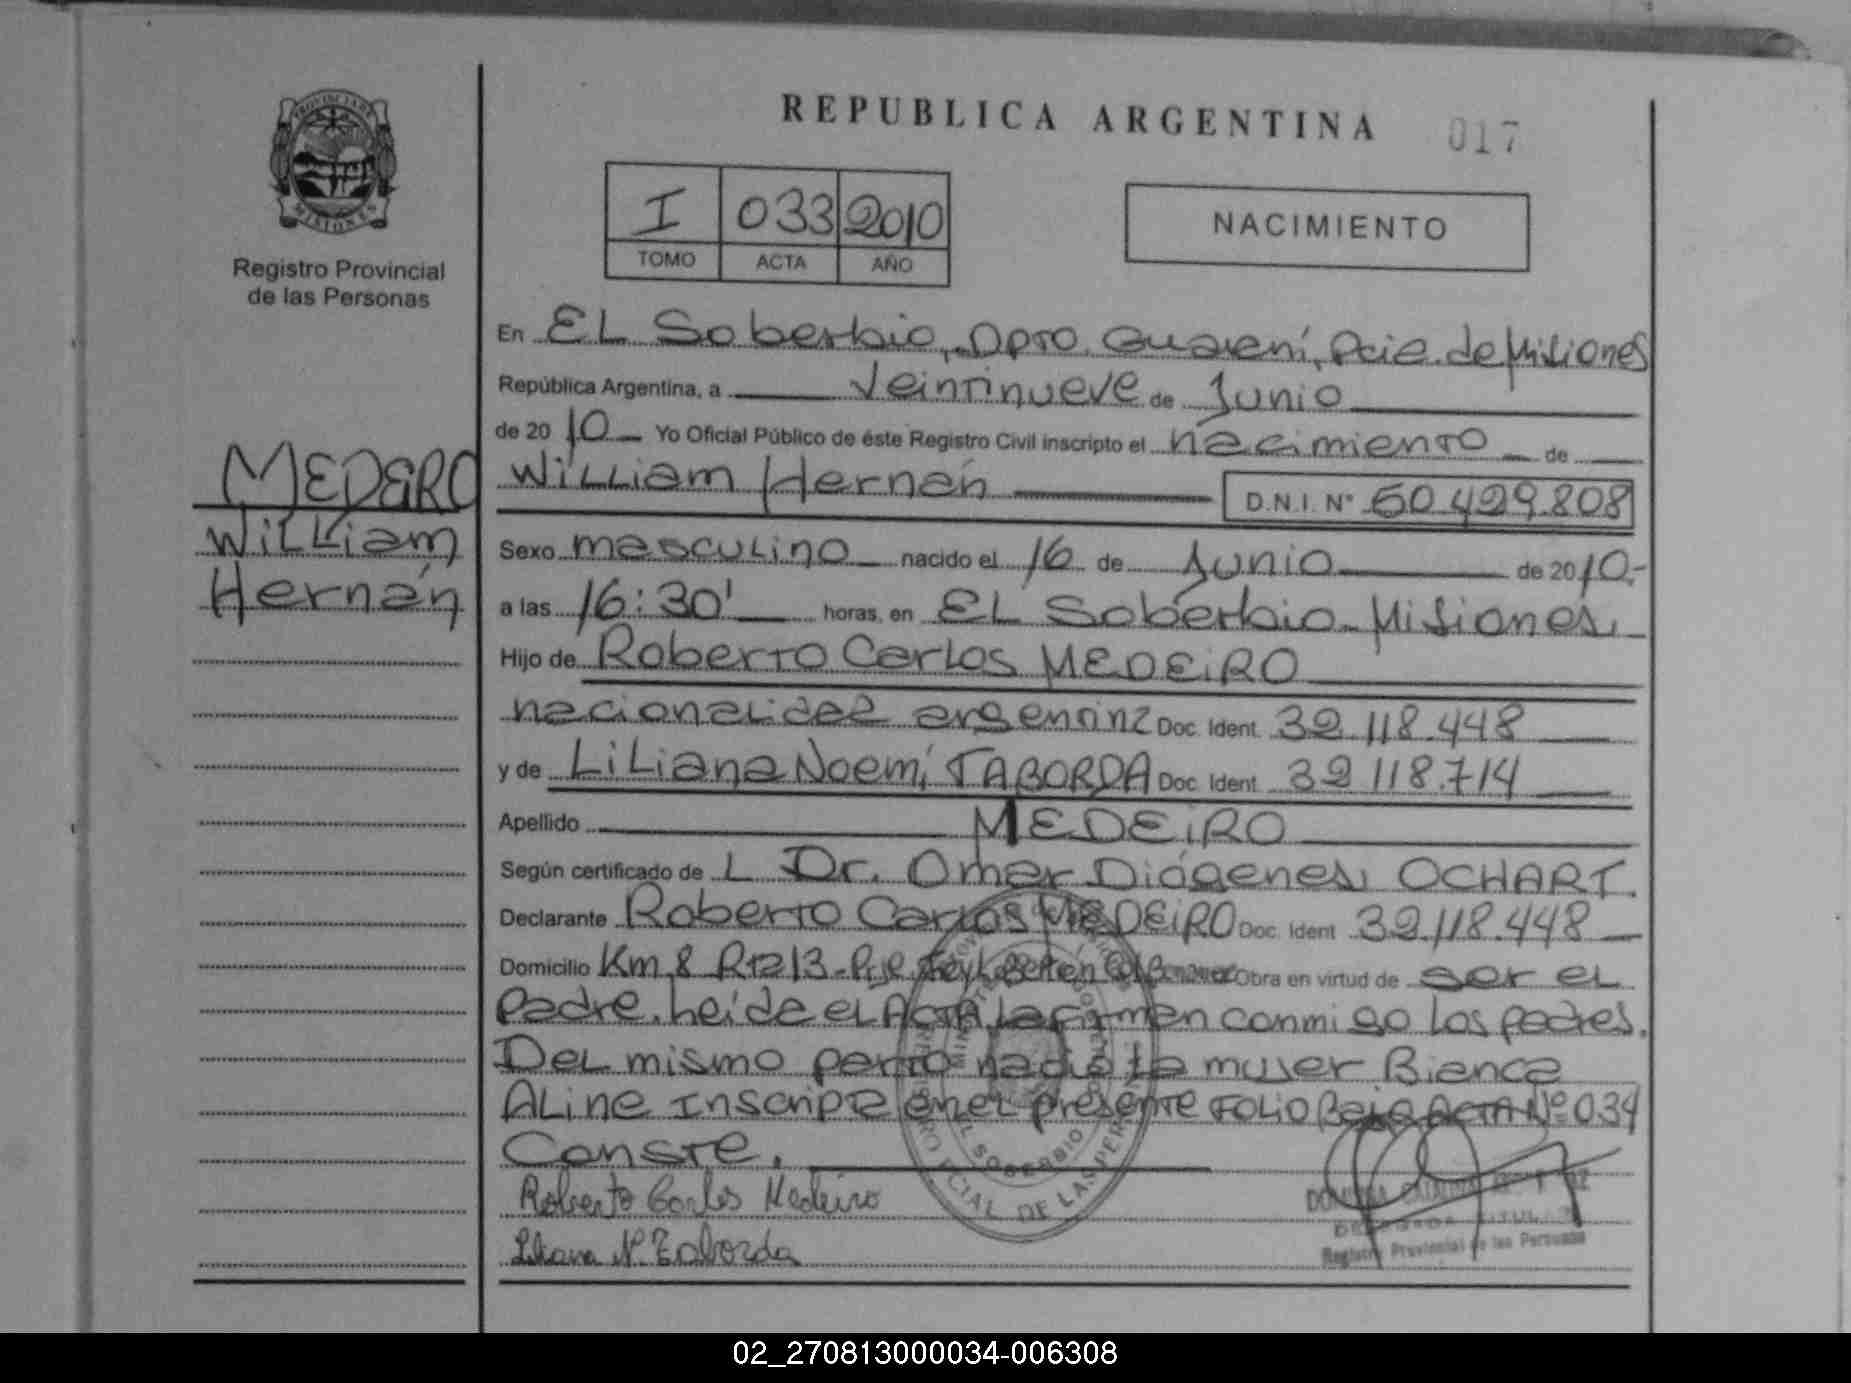 REPUBLICA ARGENTINA 017
PROVINCIA DE
MISIONES
Registro Provincial
de las Personas
I 033 2010
TOMO ACTA AÑO
NACIMIENTO
MEDERO
William
Hernán
En EL Soberbio, Dpto. Guaraní, Pcia. de Misiones
República Argentina, a veintinueve de Junio
de 2010 Yo Oficial Público de éste Registro Civil inscripto el nacimiento de
William Hernán D.N.I. N° 50.429.808
Sexo masculino nacido el 16 de Junio de 2010.-
a las 16:30' horas, en EL Soberbio - Misiones.
Hijo de Roberto Carlos MEDEIRO
nacionalidad argentina Doc. Ident. 32.118.448
y de Liliana Noemí TABORDA Doc. Ident. 32.118.714
Apellido MEDEIRO
Según certificado de L Dr. Omar Diógenes OCHART.
Declarante Roberto Carlos MEDEIRO Doc. Ident 32.118.448
Domicilio Km. 8 Rta 13 - Obra en virtud de ser el
Padre. Leída el ACTA, la firman conmigo los padres.
Del mismo parto nació la mujer Bianca
Aline Inscripta en el presente FOLIO Bajo ACTA Nº 034
Conste.
Roberto Carlos Medeiro
Liliana N. Taborda
EL SOBERBIO
DE LAS PER
DELEGADA TITULAR
Registro Provincial de las Personas
02_270813000034-006308